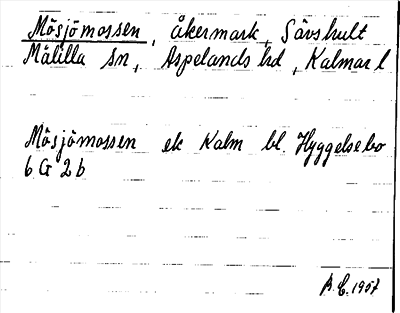 Mösjömossen, åkermark, Sävshult
Målilla sn, Aspelands hd, Kalmar l
Mösjömossen ek Kalm bl. Hyggelsebo
6 G 2 b
A.C. 1957